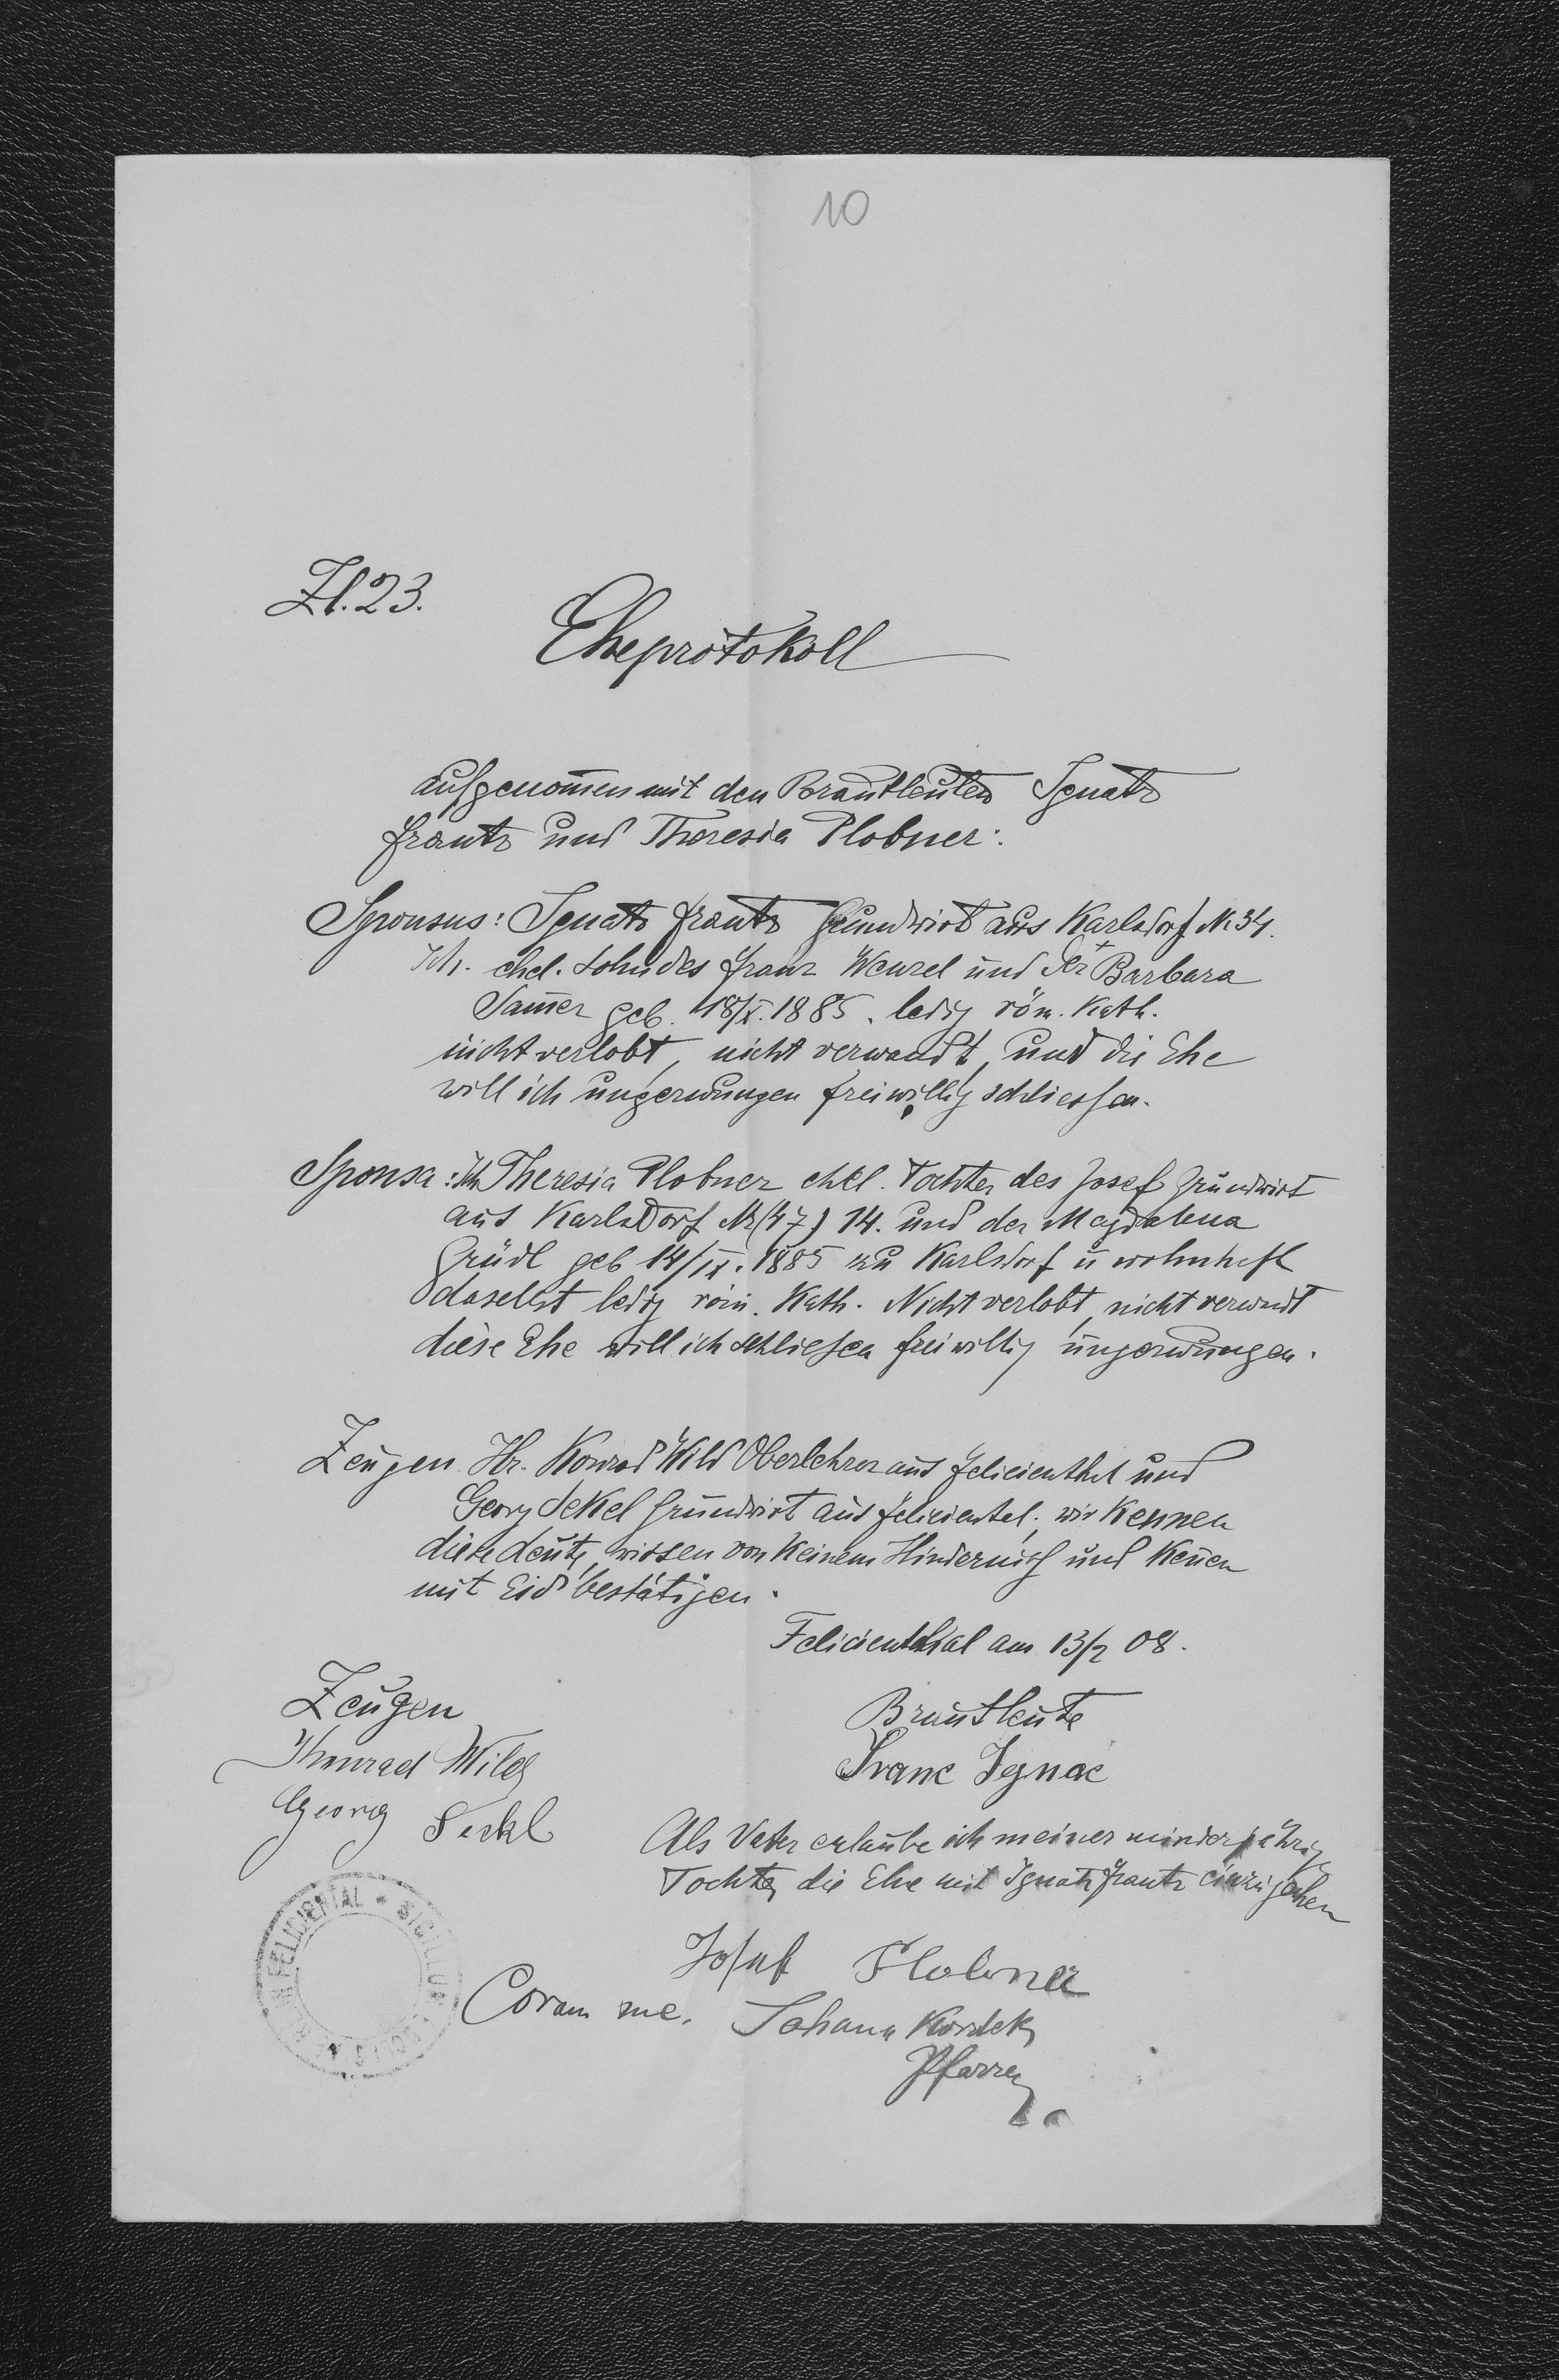 10
Zl. 23.
Eheprotokoll
aufgenom̄en mit den Brautleuten Ignatz
Frantz und Theresia Plobner:
Sponsus: Ignatz Frantz Grundwirt aus Karlsdorf Nr 34.
Ich. ehel. Sohn des Franz Wenzel und der + Barbara
geb. 18/X. 1885. ledig röm. Kath.
nicht verlobt, nicht verwandt, und die Ehe
will ich ungezwungen freiwillig schliessen.
Sponsa: Ich Theresia Plobner ehel. Tochter des Josef Grundwirt
aus Karlsdorf Nr (47) 14. und der Magdalena
Grüdl geb 14/IX. 1885 zu Karlsdorf u wohnhaft
daselbst ledig röm. Kath. Nicht verlobt, nicht verwndt
diese Ehe will ich schliessen freiwillig ungezwungen.
Zeugen Hr. Konrad Wild Oberlehrer aus Felicienthal und
Georg Sekel Grundwirt aus Felicientel; wir kennen
diese Leute, wissen von keinem Hinderniss und kenen
mit Eid bestätigen.
Felicienthal am 13/2 08.
Zeugen
Brautleute
Konrad Wild
Franc Ignac
Georg Seckl
Als Vater erlaube ich meiner minderjährig
Tochter die Ehe mit Ignatz Frantz einzugehen
Josef Plobner
Coram me. Johann
Pfarrer
FELIZIENTAL * SIGILLUM